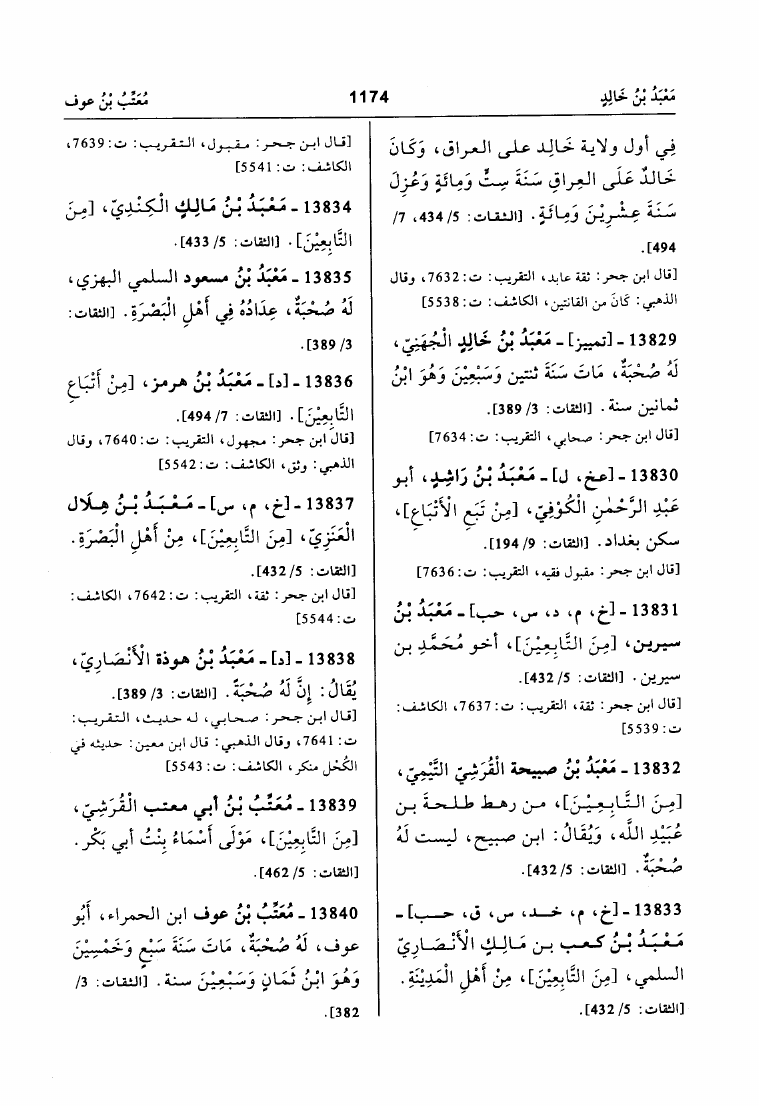 مَعْبَدُ بْنُ خَالِدٍ
1174
مُعَتِّبُ بْنُ عوف
فِي أول ولاية خَالِد على العراق، وَكَانَ
خَالدٌ عَلَى العِراقِ سَنَةَ سِتٍّ وَمِائَةٍ وَعُزِلَ
سَنَةَ عِشْرِيْنَ وَمِائَةٍ. [الثقات: 5/ 434، 7/
494].
[قال ابن حجر: ثقة عابد، التقريب: ت: 7632، وقال
الذهبي: كَانَ من القانتين، الكاشف: ت: 5538]
13829 - [تمييز] - مَعْبَدُ بْنُ خَالِدٍ الْجُهَنِيّ،
لَهُ صُحْبَةٌ، مَاتَ سَنَةَ ثنتين وَسَبْعِيْنَ وَهُوَ ابْنُ
ثمانين سنة. [الثقات: 3/ 389].
[قال ابن حجر: صحابي، التقريب: ت: 7634]
13830 - [عخ، ل] - مَعْبَدُ بْنُ رَاشِدٍ، أبو
عَبْدِ الرَّحْمٰنِ الْكُوْفِيّ، [مِنْ تَبَعِ الأَتْبَاعِ]،
سكن بغداد. [الثقات: 9/ 194].
[قال ابن حجر: مقبول فقيه، التقريب: ت: 7636]
13831 - [خ، م، د، س، حب] - مَعْبَدُ بْنُ
سيرين، [مِنَ التَّابِعِيْنَ]، أخو مُحَمَّدِ بن
سيرين. [الثقات: 5/ 432].
[قال ابن حجر: ثقة، التقريب: ت: 7637، الكاشف:
ت: 5539]
13832 - مَعْبَدُ بْنُ صبيحة الْقُرَشِيّ التَّيْمِيّ،
[مِنَ التَّابِعِيْنَ]، من رهط طلحة بن
عُبَيْدِ اللَّه، وَيُقَالُ: ابن صبيح، ليست لَهُ
صُحْبَةٌ. [الثقات: 5/ 432].
13833 - [خ، م، خد، س، ق، حب] -
مَعْبَدُ بْنُ كعب بن مَالِكٍ الأَنْصَارِيّ
السلمي، [مِنَ التَّابِعِيْنَ]، مِنْ أَهْلِ الْمَدِيْنَةِ.
[الثقات: 5/ 432].
[قال ابن حجر: مقبول، التقريب: ت: 7639،
الكاشف: ت: 5541]
13834 - مَعْبَدُ بْنُ مَالِكٍ الْكِنْدِيّ، [مِنَ
التَّابِعِيْنَ]. [الثقات: 5/ 433].
13835 - مَعْبَدُ بْنُ مسعود السلمي البهزي،
لَهُ صُحْبَةٌ، عِدَادُهُ فِي أَهْلِ الْبَصْرَةِ. [الثقات:
3/ 389].
13836 - [د] - مَعْبَدُ بْنُ هرمز، [مِنْ أَتْبَاعِ
التَّابِعِيْنَ]. [الثقات: 7/ 494].
[قال ابن حجر: مجهول، التقريب: ت: 7640، وقال
الذهبي: وثق، الكاشف: ت: 5542]
13837 - [خ، م، س] - مَعْبَدُ بْنُ هِلَال
الْعَنَزِيّ، [مِنَ التَّابِعِيْنَ]، مِنْ أَهْلِ الْبَصْرَةِ.
[الثقات: 5/ 432].
[قال ابن حجر: ثقة، التقريب: ت: 7642، الكاشف:
ت: 5544]
13838 - [د] - مَعْبَدُ بْنُ هوذة الأَنْصَارِيّ،
يُقَالُ: إِنَّ لَهُ صُحْبَةٌ. [الثقات: 3/ 389].
[قال ابن حجر: صحابي، له حديث، التقريب:
ت: 7641، وقال الذهبي: قال ابن معين: حديثه في
الكُحْل منكر، الكاشف: ت: 5543]
13839 - مُعَتِّبُ بْنُ أبي معتب الْقُرَشِيّ،
[مِنَ التَّابِعِيْنَ]، مَوْلَى أَسْمَاءُ بِنْتُ أبي بَكْرٍ.
[الثقات: 5/ 462].
13840 - مُعَتِّبُ بْنُ عوف ابن الحمراء، أَبُو
عوف، لَهُ صُحْبَةٌ، مَاتَ سَنَةَ سَبْعٍ وَخَمْسِيْنَ
وَهُوَ ابْنُ ثَمَانٍ وَسَبْعِيْنَ سنة. [الثقات: 3/
382].